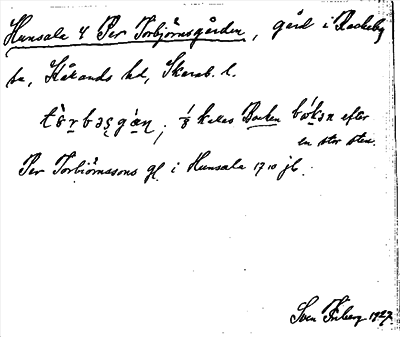 Hunsala 4 Per Torbjörnsgården, gård i Rackeby
sn, Kållands hd, Skarab. l.
tòrbəsgàṇ; 1/8 kallas Backen bókən efter
en stor sten.
Per Torbiörnssons gd i Hunsala 1710 jb.
Sven Friberg 1927.